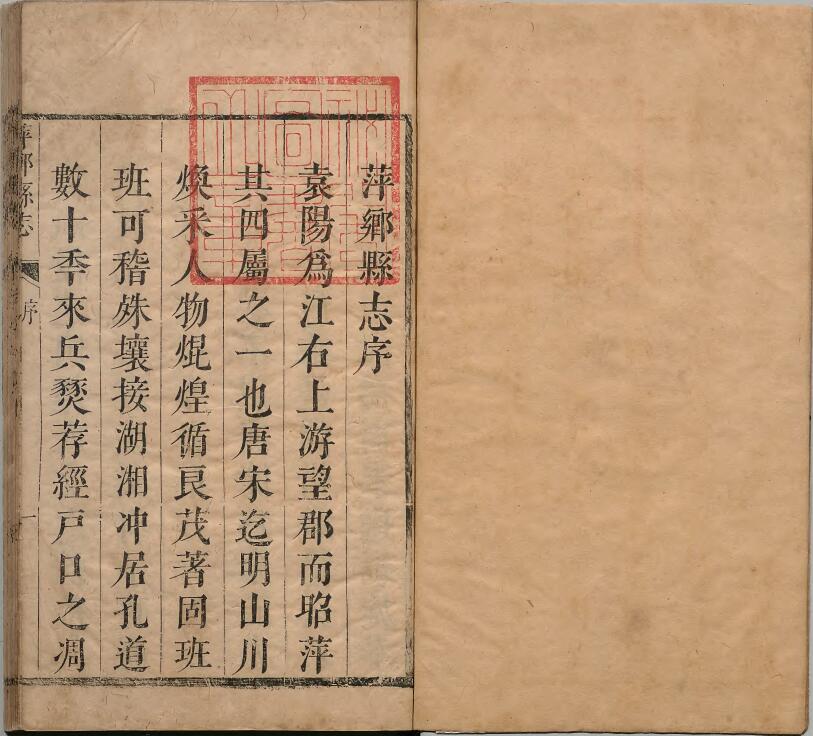 萍鄉縣志序
袁陽爲江右上游望郡而昭萍
其四屬之一也唐宋迄明山川
煥采人物焜煌循良茂著固班
班可稽姝壤接湖湘冲居孔道
數十秊來兵燹荐經戶口之凋
萍鄉縣志
序
一